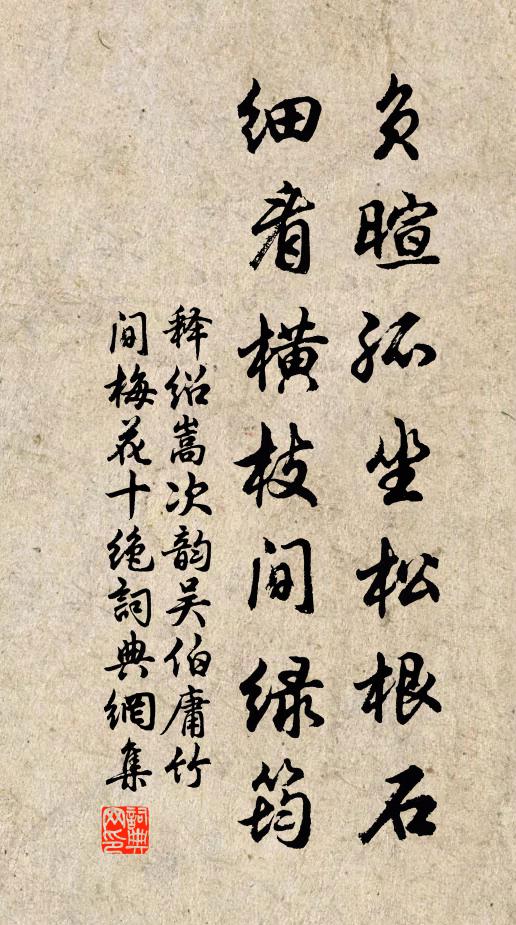 负暄孤坐松根石
细看横枝间绿筠
释绍嵩次韵吴伯庸竹
间梅花十绝詞典網集
詞典
网印